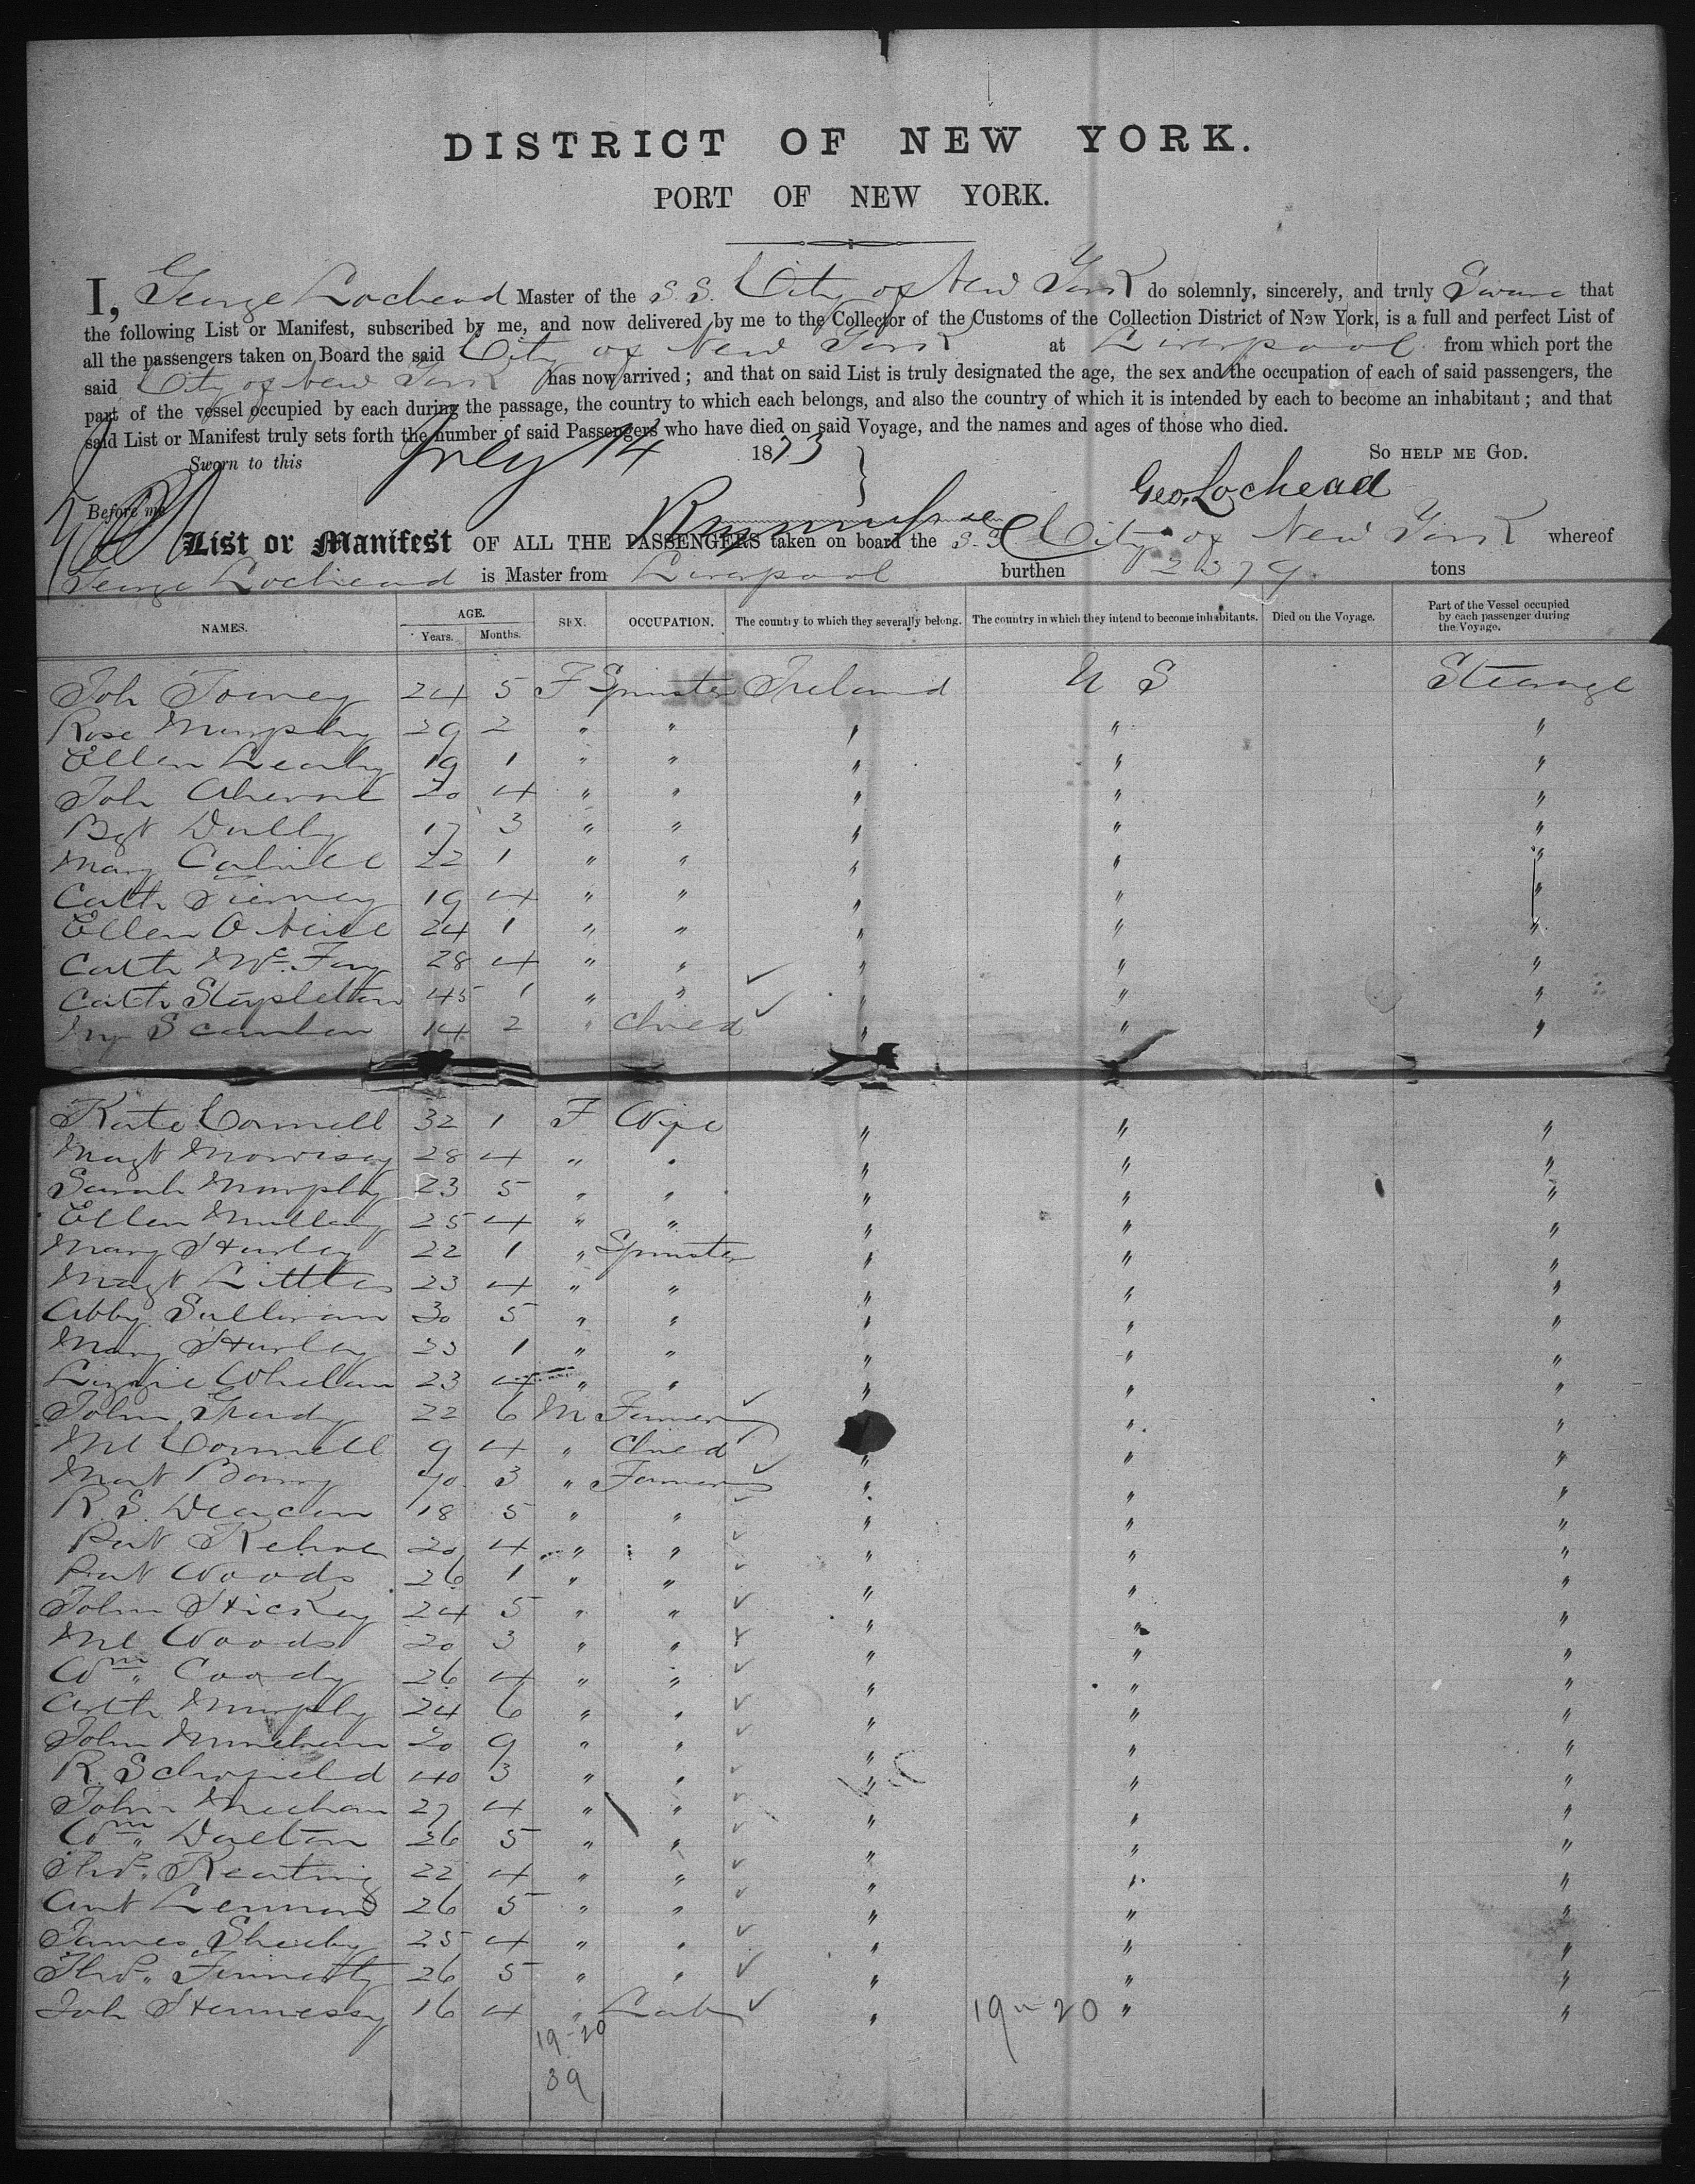 DISTRICT OF NEW YORK.
PORT OF NEW YORK.
I, George Lochead Master of the S.S. City of New York do solemnly, sincerely, and truly Swear that
the following List or Manifest, subscribed by me, and now delivered by me to the Collector of the Customs of the Collection District of New York, is a full and perfect List of
all the passengers taken on Board the said City of New York at Liverpool from which port the
said City of New York has now arrived; and that on said List is truly designated the age, the sex and the occupation of each of said passengers, the
part of the vessel occupied by each during the passage, the country to which each belongs, and also the country of which it is intended by each to become an inhabitant; and that
said List or Manifest truly sets forth the number of said Passengers who have died on said Voyage, and the names and ages of those who died.
Sworn to this July 14 1873 So help me God.
Geo. Lochead
Before me
List or Manifest OF ALL THE PASSENGERS taken on board the S.S. City of New York whereof
George Lochead is Master from Liverpool burthen 2379 tons
NAMES. AGE. Years. Months. SEX. OCCUPATION. The country to which they severally belong. The country in which they intend to become inhabitants. Died on the Voyage. Part of the Vessel occupied by each passenger during the Voyage.
Joh Toomey 24 5 F Spinster Ireland U S Steerage
Rose Murphy 29 2 " " " " "
Ellen Leahy 19 1 " " " " "
Joh Aherne 20 4 " " " " "
Bgt Dully 17 3 " " " " "
Mary Cahill 22 1 " " " " "
Cath Tierney 19 4 " " " " "
Ellen O Neill 24 1 " " " " "
Cath McFay 28 4 " " " " "
Cath Stapleton 45 1 " " " " "
My Scanlan 14 2 " Child " " "
Kate Connell 32 1 F Wife " " "
Magt Morrisey 28 4 " " " " "
Sarah Murphy 23 5 " " " " "
Ellen Mullany 25 4 " " " " "
Mary Hurley 22 1 " Spinster " " "
Magt Littles 23 4 " " " " "
Abby Sullivan 30 5 " " " " "
Mary Hurley 23 1 " " " " "
Lizzie Whelan 23 4 " " " " "
John Grady 22 6 M Farmer " "
Ml Connell 9 4 " Child " " "
Mart Barry 40 3 " Farmer " " "
R. S. Deacon 18 5 " " " " "
Pat Kehoe 20 4 " " " " "
Pat Woods 26 1 " " " " "
John Hickey 24 5 " " " " "
Ml Woods 20 3 " " " " "
Wm Coody 26 4 " " " " "
Arth Murphy 24 6 " " " " "
John Minehan 20 9 " " " " "
R. Schofield 40 3 " " " " "
John Meehan 27 4 " " " " "
Wm Dalton 26 5 " " " " "
Thos. Keating 22 4 " " " " "
Ant Lennard 26 5 " " " " "
James Sheehy 25 4 " " " " "
Thos. Finnerty 26 5 " " " " "
Joh Hennessy 16 4 " Lab " 19 " 20 " "
19-20
39